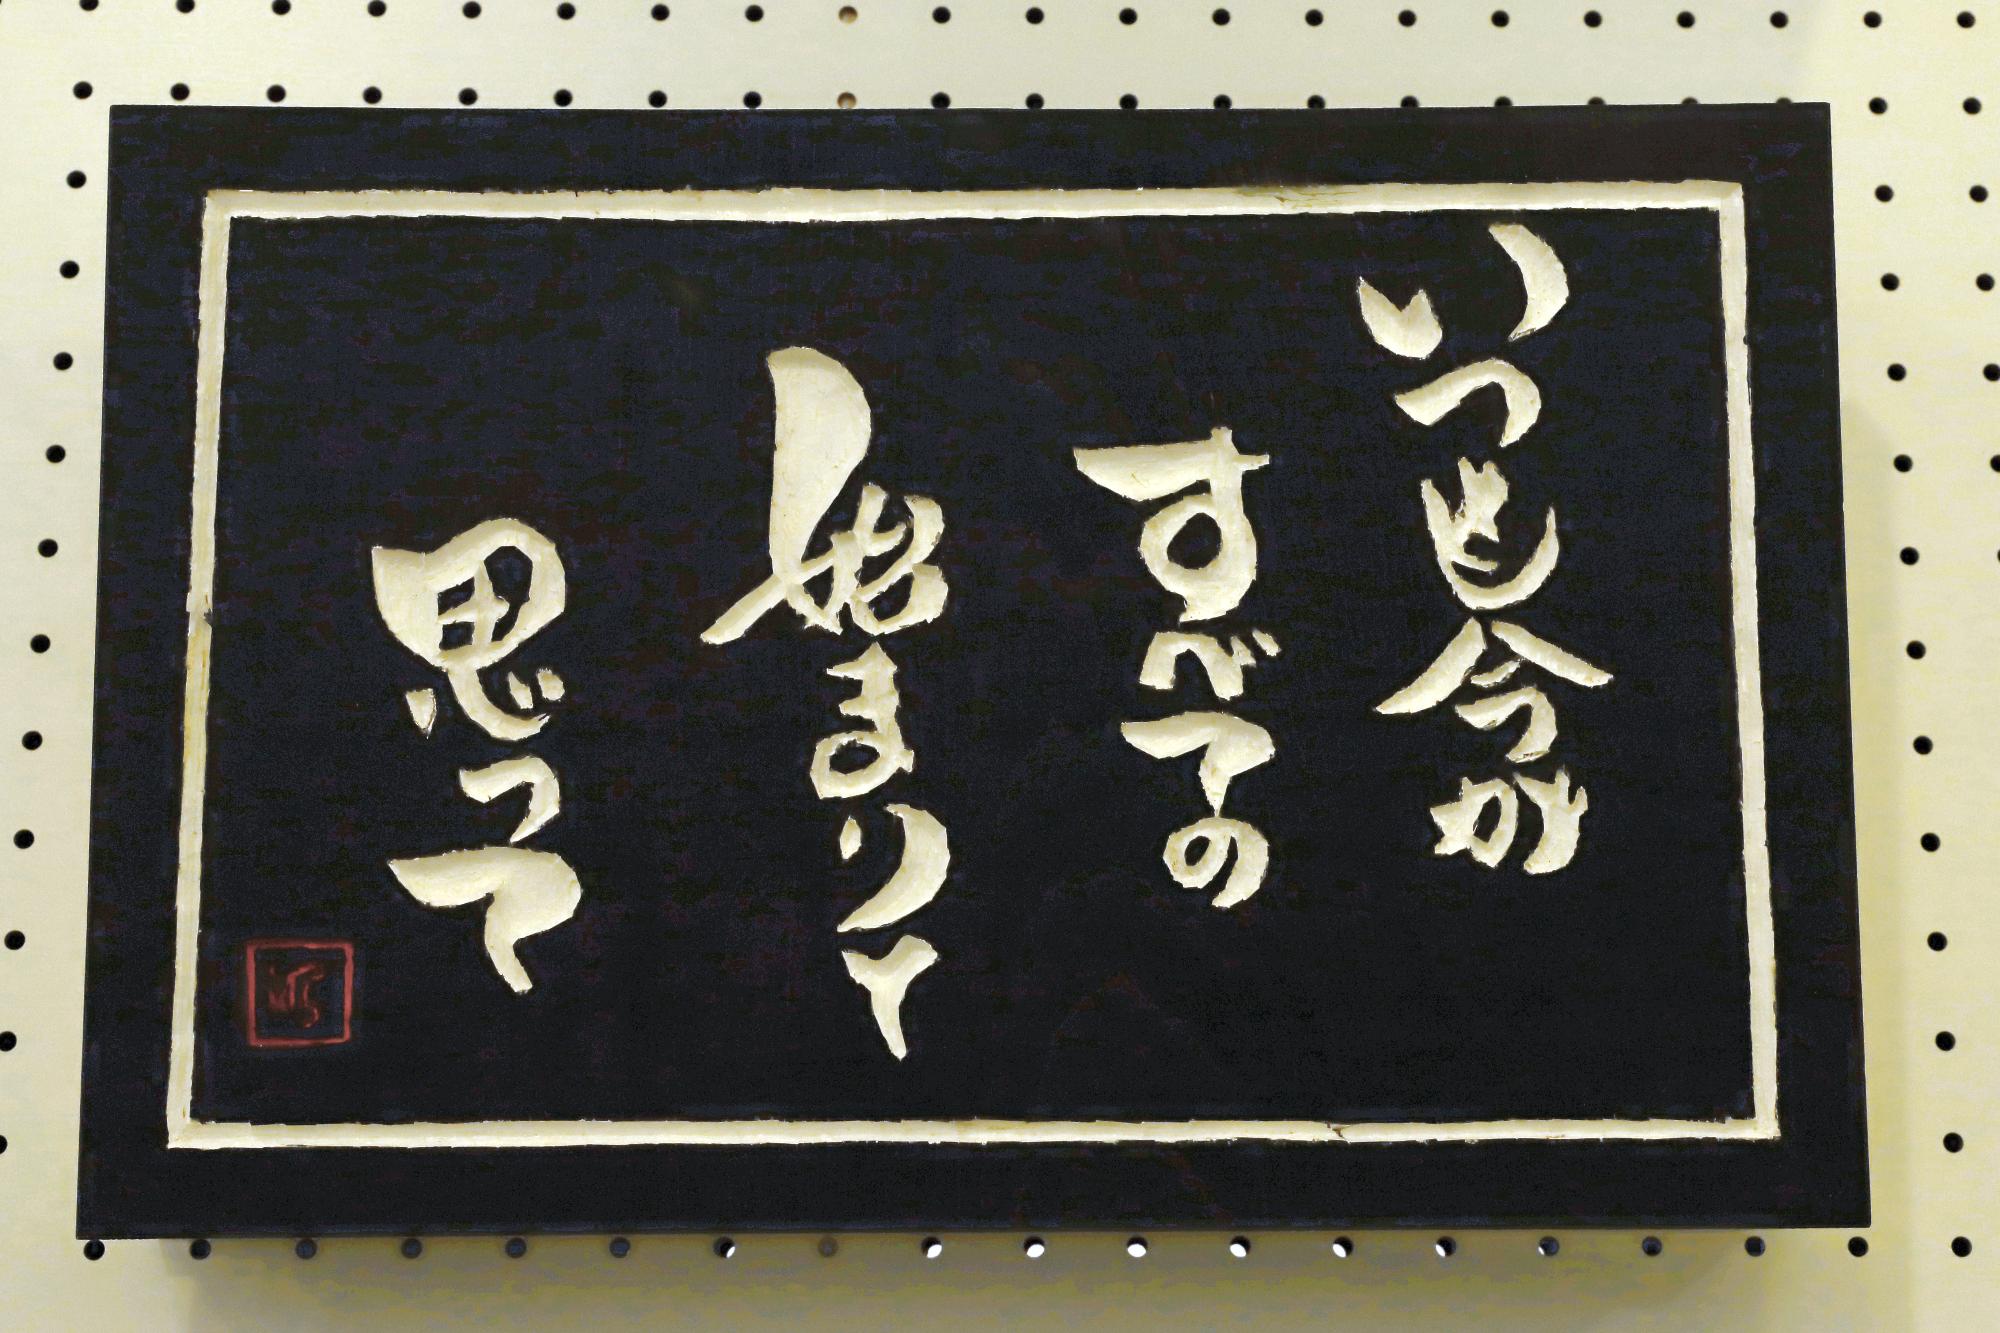 いつも今が
すべての
始まりと
思って